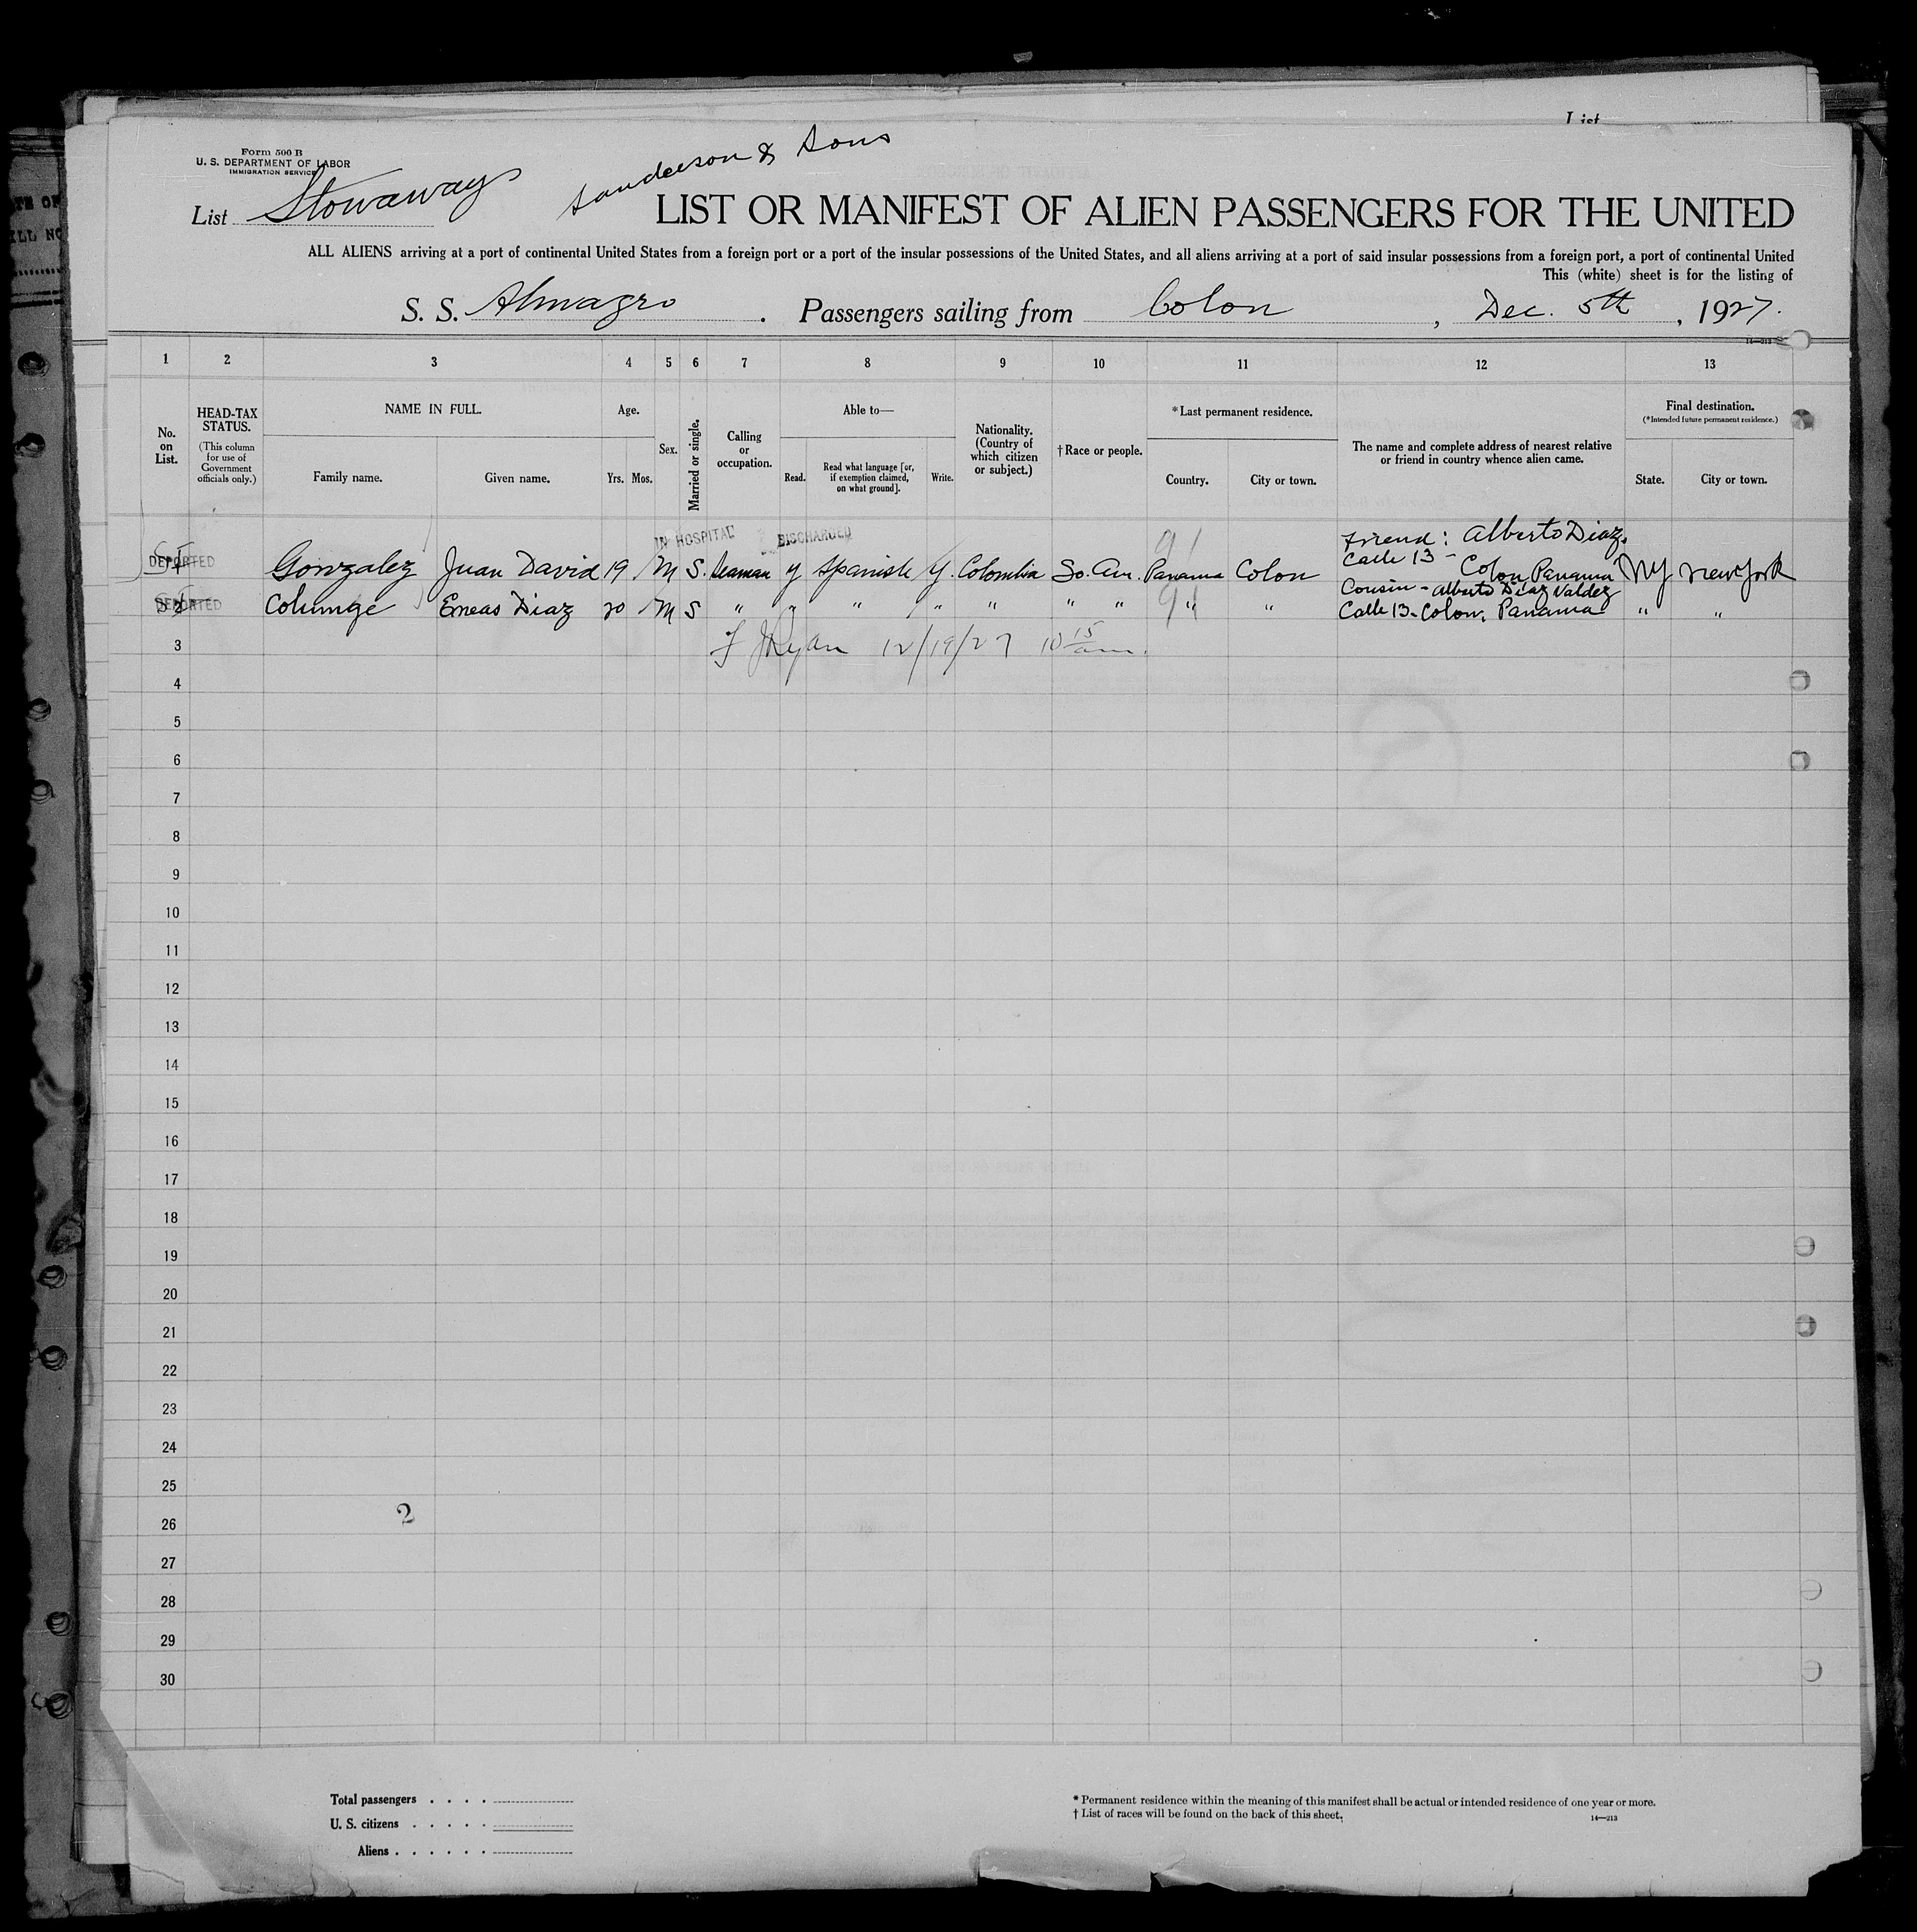 List
Form 500 B
U. S. DEPARTMENT OF LABOR
IMMIGRATION SERVICE
List Stowaways
Sanderson & Sons
LIST OR MANIFEST OF ALIEN PASSENGERS FOR THE UNITED
ALL ALIENS arriving at a port of continental United States from a foreign port or a port of the insular possessions of the United States, and all aliens arriving at a port of said insular possessions from a foreign port, a port of continental United
This (white) sheet is for the listing of
S. S. Almagro . Passengers sailing from Colon , Dec. 5th , 1927.
14—213
1 2 3 4 5 6 7 8 9 10 11 12 13
No. on List.
HEAD-TAX STATUS.
(This column for use of Government officials only.)
NAME IN FULL.
Family name. Given name.
Age.
Yrs. Mos.
Sex.
Married or single.
Calling or occupation.
Able to—
Read. Read what language [or, if exemption claimed, on what ground]. Write.
Nationality. (Country of which citizen or subject.)
†Race or people.
*Last permanent residence.
Country. City or town.
The name and complete address of nearest relative or friend in country whence alien came.
Final destination.
(*Intended future permanent residence.)
State. City or town.
IN HOSPITAL DISCHARGED
91
DEPORTED Gonzalez Juan David 19 M S. Seaman y Spanish y. Colombia So. Am. Panama Colon friend: Alberto Diaz. Calle 13 - Colon Panama NY New York
DEPORTED Colunge Eneas Diaz 20 M S " " " " " " " " " Cousin - Alberto Diaz Valdez Calle 13 - Colon, Panama " "
91
3 F J Ryan 12/19/27 10 15 am.
4
5
6
7
8
9
10
11
12
13
14
15
16
17
18
19
20
21
22
23
24
25
2
26
27
28
29
30
Total passengers . . . .
U. S. citizens . . . . .
Aliens . . . . . .
* Permanent residence within the meaning of this manifest shall be actual or intended residence of one year or more.
† List of races will be found on the back of this sheet.
14—213